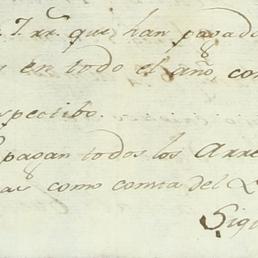 que han pagado
en todo el año, con
specibo.
pagan todos los Arre
as como consta del L
Sigu